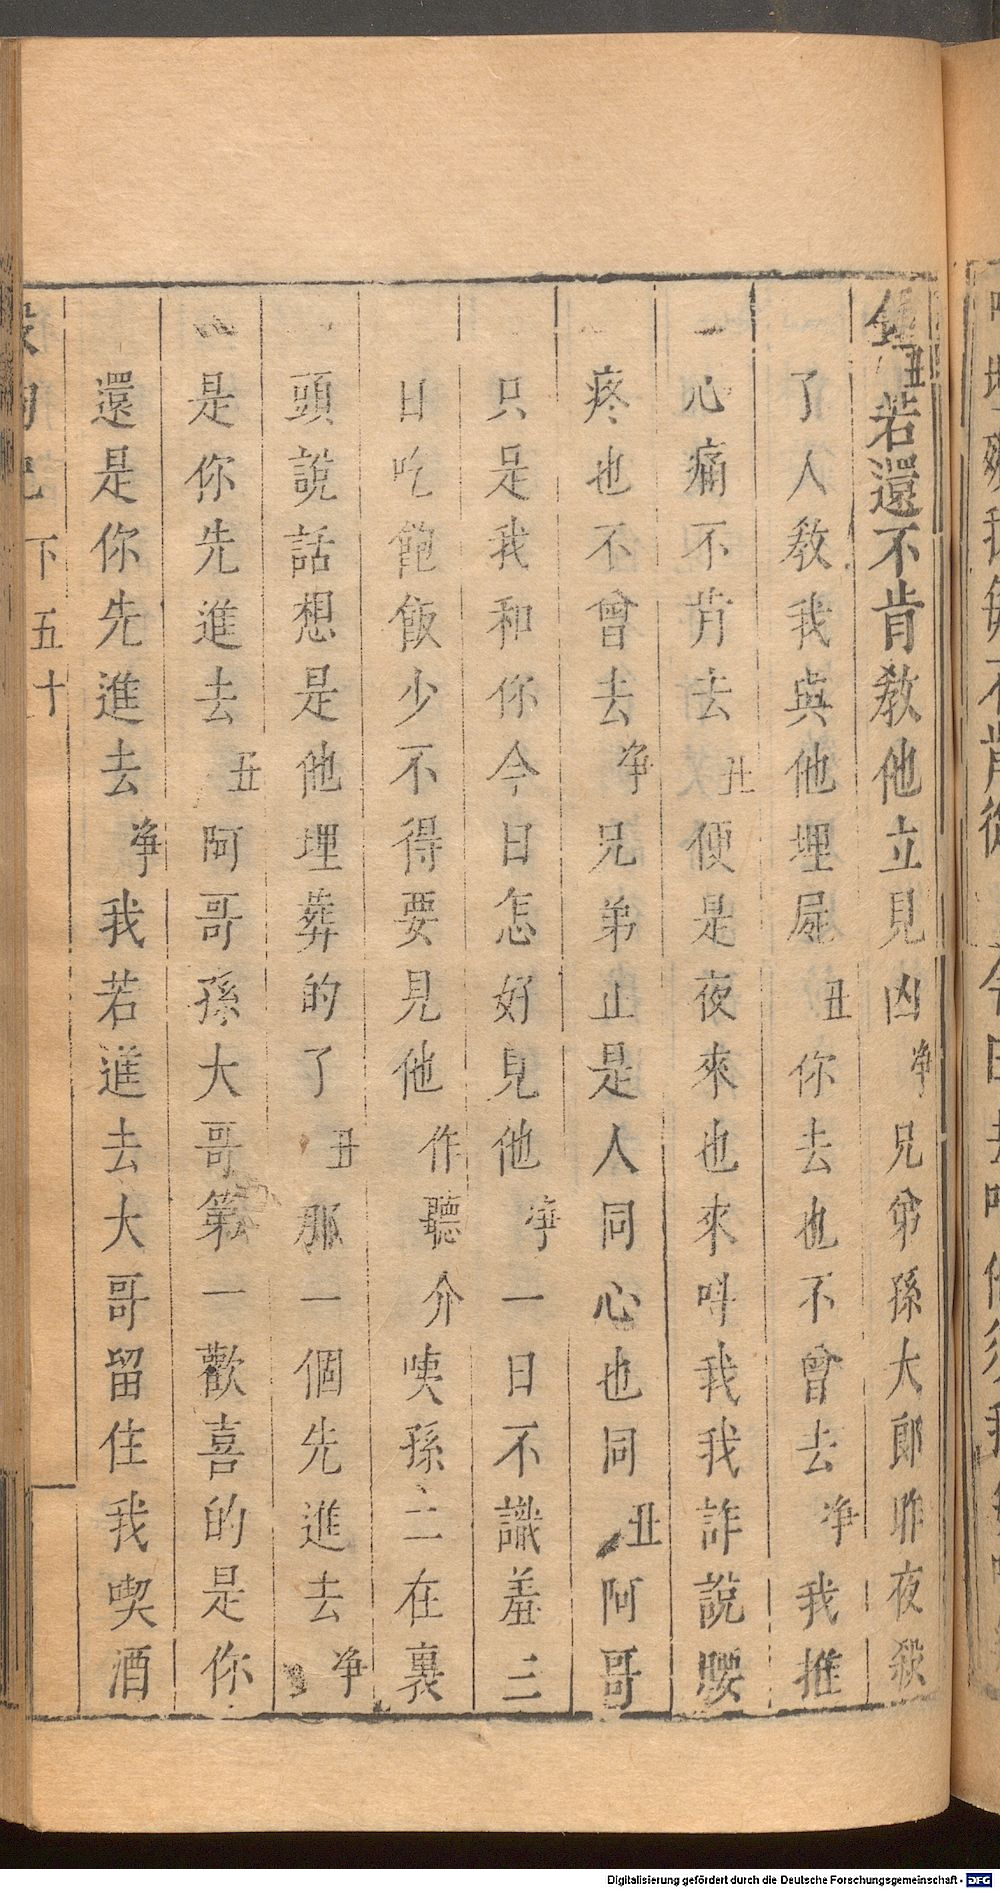 丑若還不肯教他立見凶淨兄弟孫大郎昨夜殺
了人教我與他埋屍丑你去也不曾去淨我推
心痛不肯去丑便是夜來也來呌我我詐說腰
疼也不曾去淨兄弟正是人同心也同丑阿哥
只是我和你今日怎好見他淨一日不識羞三
日吃飽飯少不得要見他作聽介咦孫二在裏
頭說話想是他埋葬的了丑那一個先進去淨
是你先進去丑阿哥孫大哥第一歡喜的是你
還是你先進去淨我若進去大哥留住我喫酒
下五十
Digitalisierung gefördert durch die Deutsche Forschungsgemeinschaft - DFG